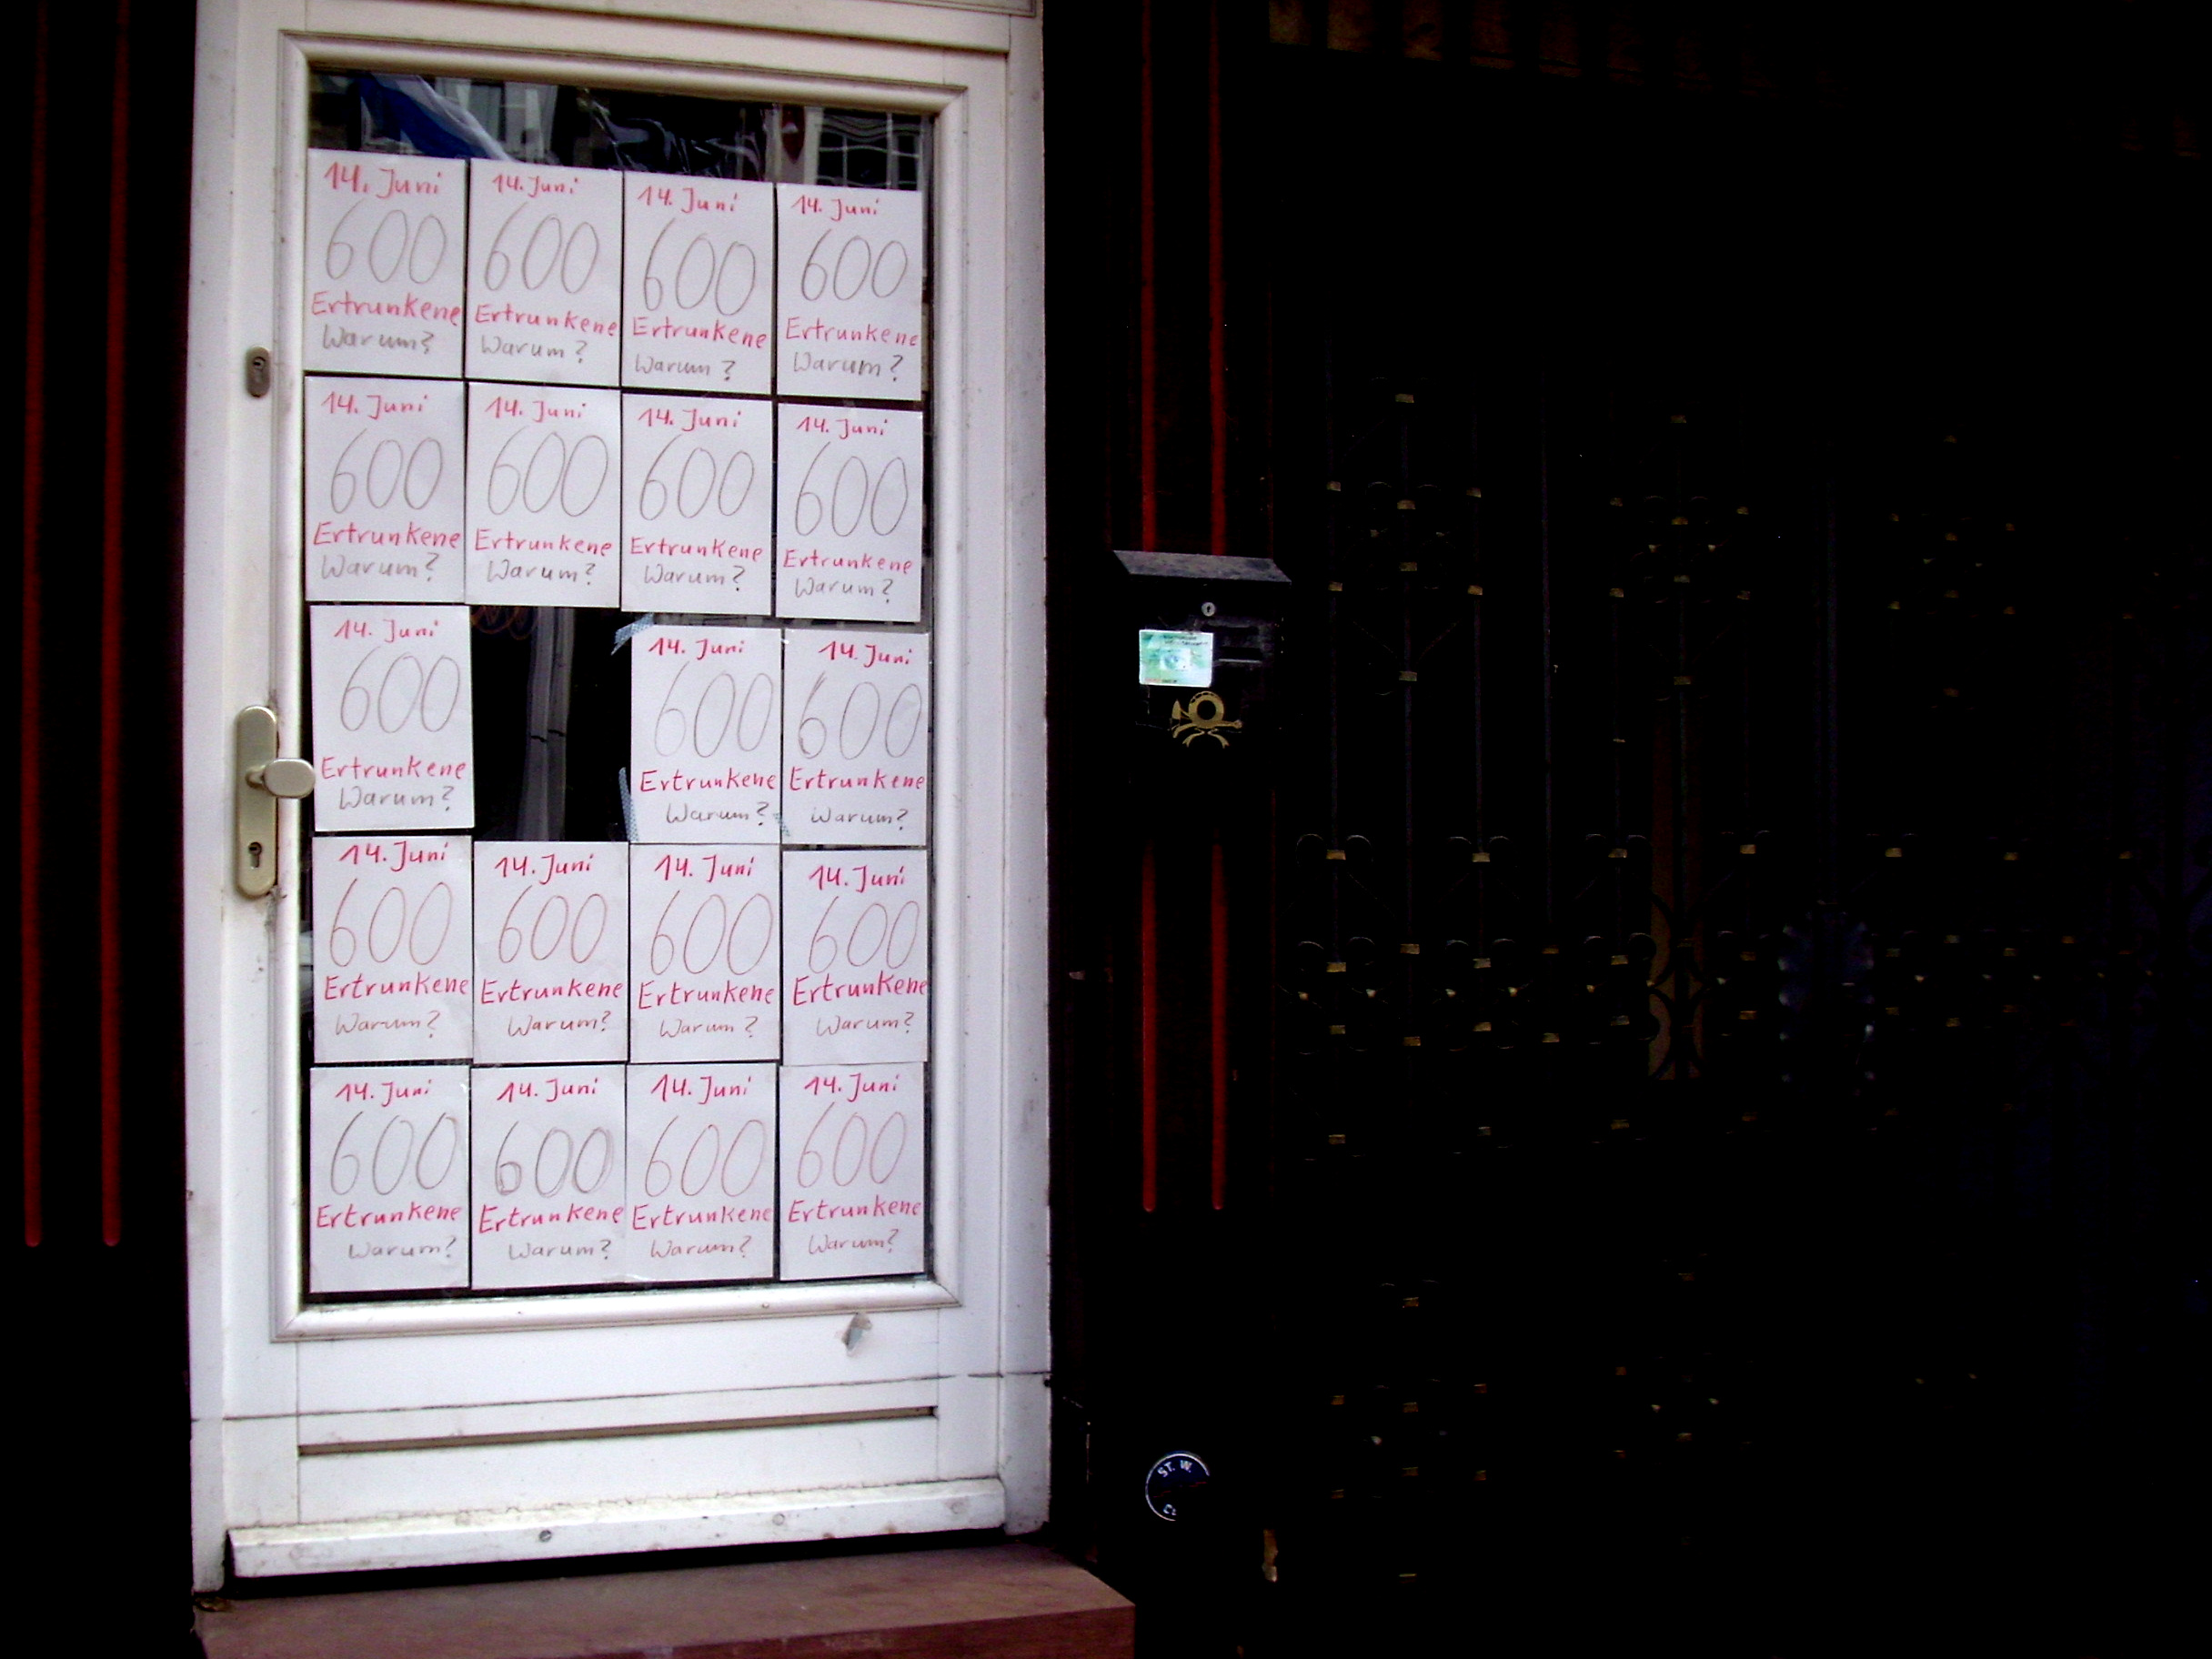 14. Juni
600
Ertrunkene
Warum?
14. Juni
600
Ertrunkene
Warum?
14. Juni
600
Ertrunkene
Warum?
14. Juni
600
Ertrunkene
Warum?
14. Juni
600
Ertrunkene
Warum?
14. Juni
600
Ertrunkene
Warum?
14. Juni
600
Ertrunkene
Warum?
14. Juni
600
Ertrunkene
Warum?
14. Juni
600
Ertrunkene
Warum?
14. Juni
600
Ertrunkene
Warum?
14. Juni
600
Ertrunkene
Warum?
14. Juni
600
Ertrunkene
Warum?
14. Juni
600
Ertrunkene
Warum?
14. Juni
600
Ertrunkene
Warum?
14. Juni
600
Ertrunkene
Warum?
14. Juni
600
Ertrunkene
Warum?
14. Juni
600
Ertrunkene
Warum?
14. Juni
600
Ertrunkene
Warum?
14. Juni
600
Ertrunkene
Warum?
ST. W.